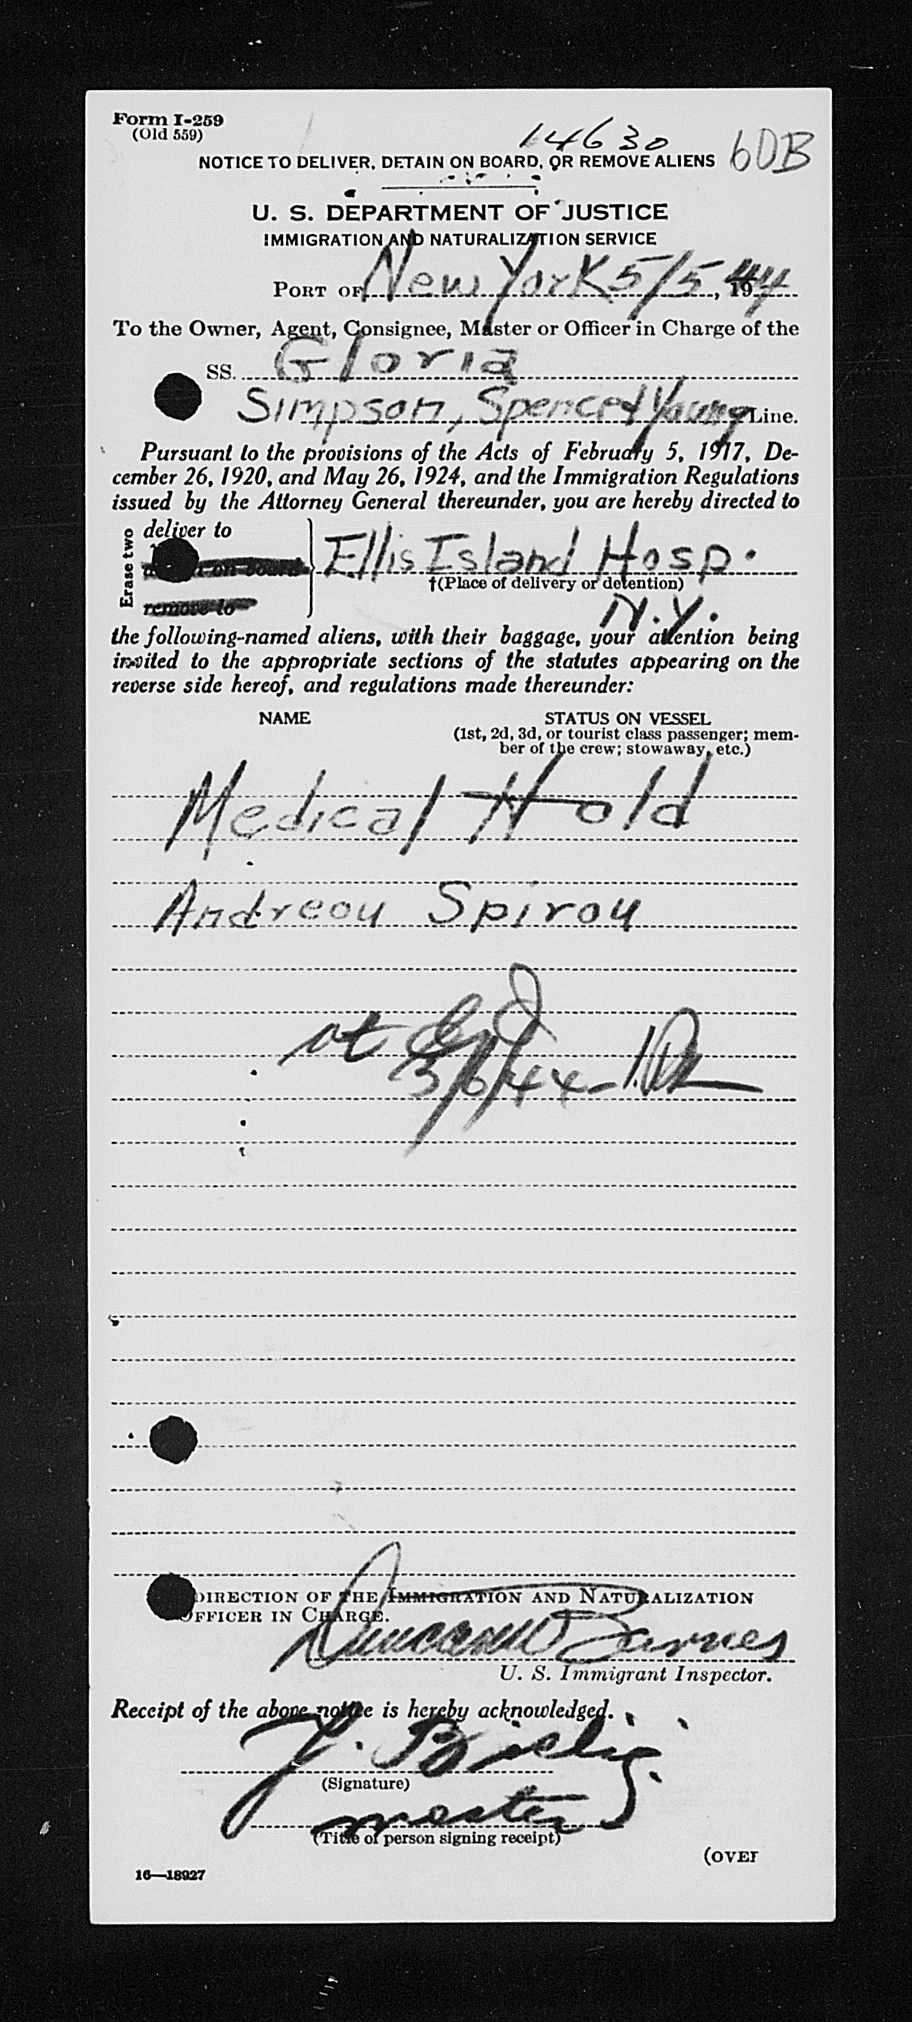 Form I-259
(Old 559)
14630
60B
NOTICE TO DELIVER, DETAIN ON BOARD, OR REMOVE ALIENS
U. S. DEPARTMENT OF JUSTICE
IMMIGRATION AND NATURALIZATION SERVICE
PORT OF New York 5/5, 1944
To the Owner, Agent, Consignee, Master or Officer in Charge of the
SS. Gloria
Simpson, Spence & Young Line.
Pursuant to the provisions of the Acts of February 5, 1917, De-
cember 26, 1920, and May 26, 1924, and the Immigration Regulations
issued by the Attorney General thereunder, you are hereby directed to
Erase two
deliver to
on board
remove to
Ellis Island Hosp.
†(Place of delivery or detention)
N.Y.
the following-named aliens, with their baggage, your attention being
invited to the appropriate sections of the statutes appearing on the
reverse side hereof, and regulations made thereunder:
NAME
STATUS ON VESSEL
(1st, 2d, 3d, or tourist class passenger; mem-
ber of the crew; stowaway, etc.)
Medical Hold
Andreou Spirou
at
5/6/44
DIRECTION OF THE IMMIGRATION AND NATURALIZATION
OFFICER IN CHARGE.
Duncan Barnes
U. S. Immigrant Inspector.
Receipt of the above notice is hereby acknowledged.
(Signature)
master
(Title of person signing receipt)
(OVER
16—18927